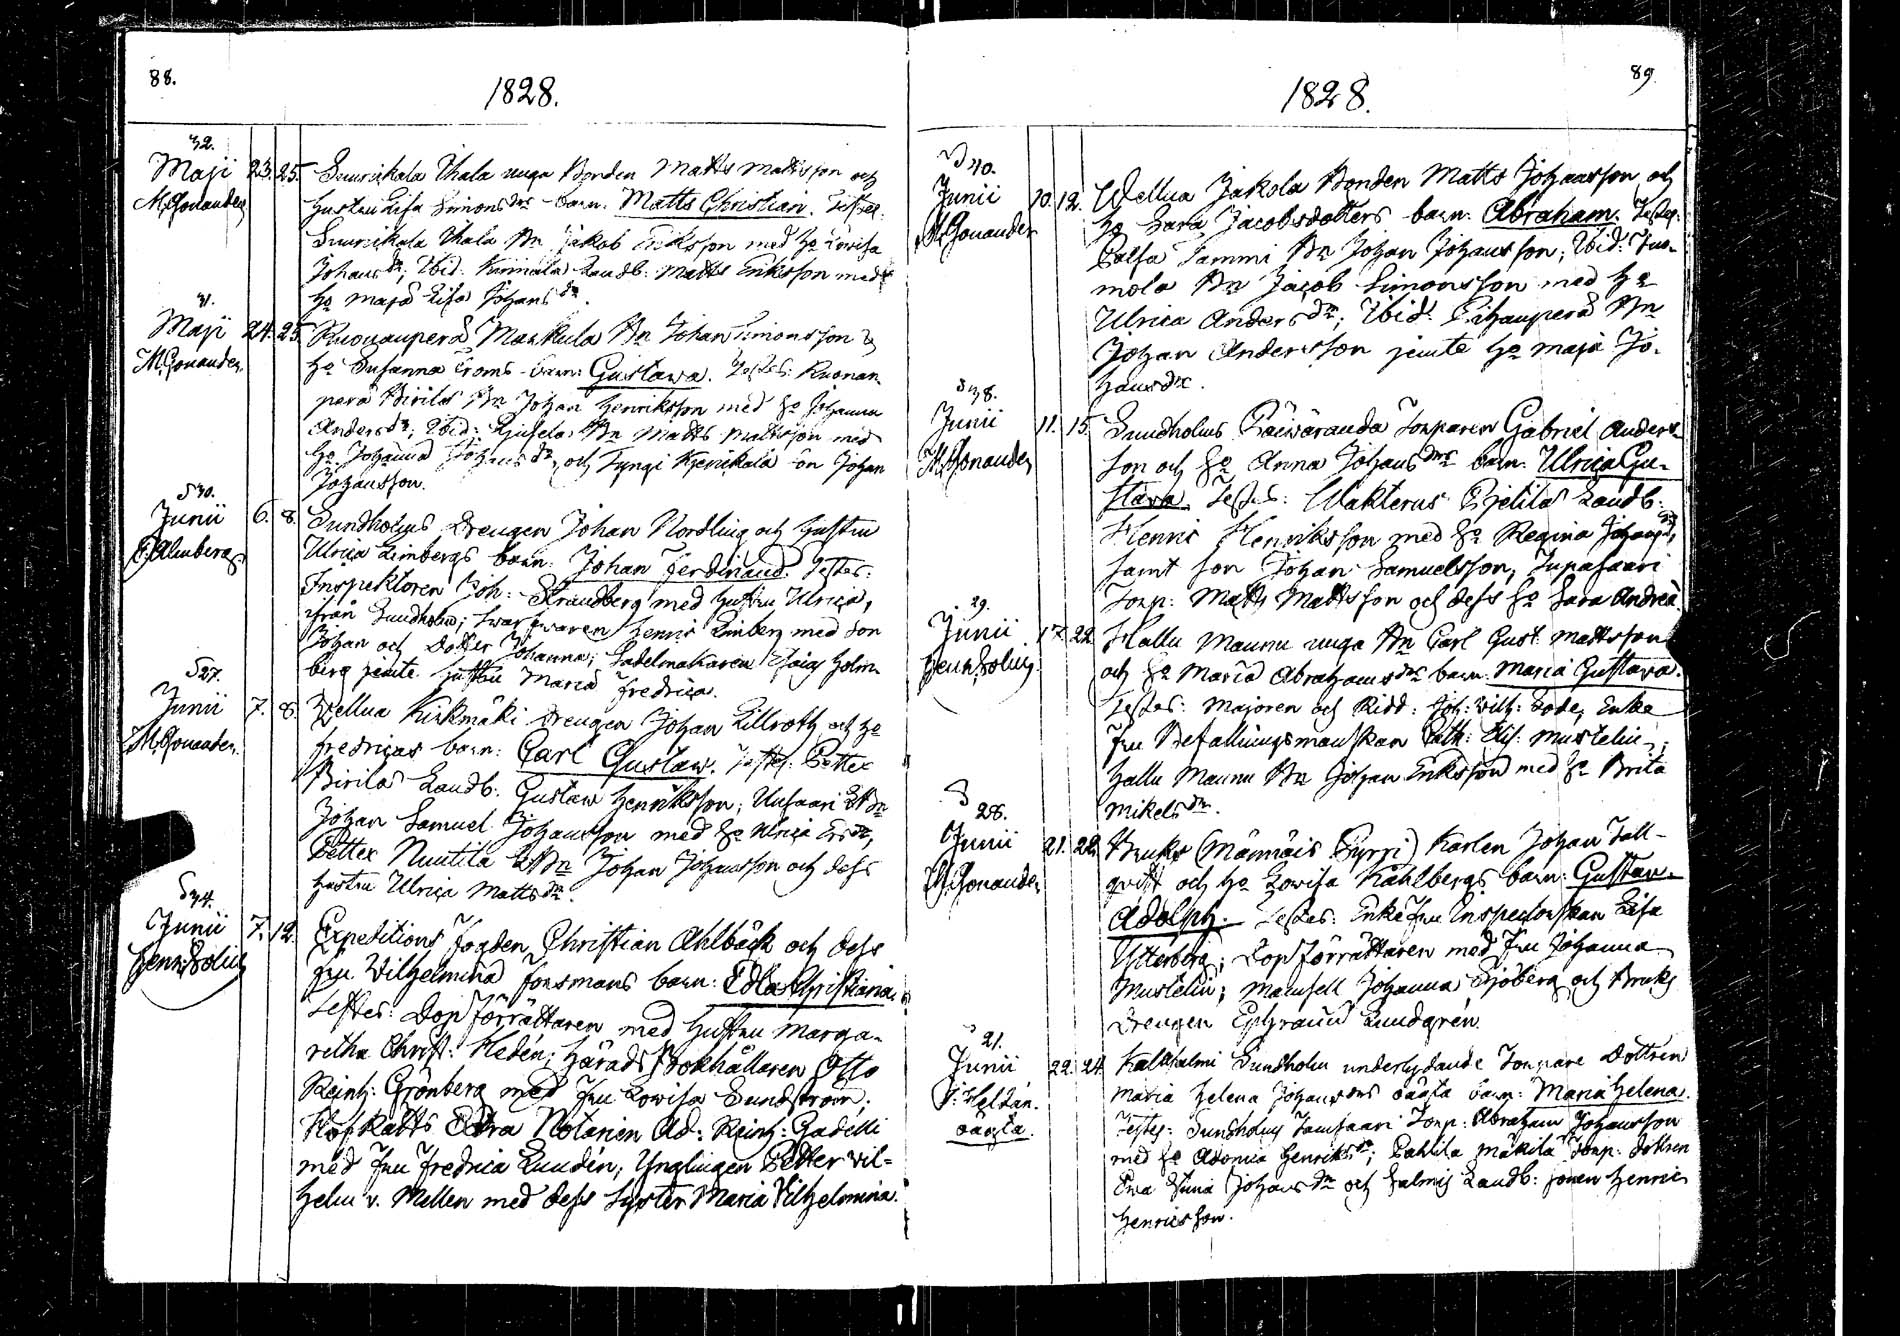 88.
1828.
32.
Maji 23. 25. Suurikala Uhala unga Bonden Matts Mattsson och
M. Gonander hustru Lisa Simonsdrs barn: Matts Christian. Testes:
Suurikala Uhala Bn Jakob Eriksson med ho Lowisa
Johansdr, Ibid: Kirmula Landb: Matts Eriksson med
ho Maja Lisa Johansdr.
31.
Maji 24. 25. Ruonanperä Markula Bn Johan Simonsson &
M. Gonander. ho Susanna Eroms barn: Gustava. Testes: Ruonan-
perä Birila Bn Johan Henriksson med ho Johanna
Andersdr; Ibid: Bn Matts Mattsson med
ho Johanna Johansdr, och son Johan
Johansson.
30.
Junii 6. 8. Sundholms Drengen Johan Nordling och hustru
Almberg. Ulrica Limbergs barn: Johan Ferdinand. Testes:
Inspektoren Joh: Strandberg med hustru Ulrica,
ifrån Sundholm; Swarfwaren Henric Limberg med son
Johan och Dotter Johanna; Sadelmakaren Holm-
berg jemte hustru Maria Fredrica.
27.
Junii 7. 8. Wellua Kirkmäki Drengen Johan Lillroth och ho
M. Gonander. Fredricas barn: Carl Gustaw. Testes: Petter
Birila Landb: Gustaw Henriksson; Uusaari Bn
Johan Samuel Johansson med ho Ulrica Ersdr,
Petter Nuutila Bn Johan Johansson och dess
hustru Ulrica Mattsdr.
34.
Junii 7. 12. Expeditions Fogden Christian Ahlbäck och dess
Henr: Polin fru Wilhelmina Forsmans barn: Edla Christiana.
Testes: Dop Förrättaren med Hustru Marga-
retha Christ: Hedén; Härads Bokhållaren Otto
Reinh: Grönberg med Fru Lowisa Sundström;
HofRätts Extra Notarien Ad: Reinh: Gadelli
med Fru Fredrica Lundén; Ynglingen Petter Wil-
helm v. Mellen med dess Syster Maria Vilhelmina.
89.
1828.
40.
Junii 10. 12. Wellua Jakola Bonden Matts Johansson och
M. Gonander ho Sara Jacobsdotters barn: Abraham. Testes:
Palsa Tammi Bn Johan Johansson; Ibid: Tuo-
mola Bn Jacob Simonsson med ho
Ulrica Andersdr; Ibid: Pihanperä Bn
Johan Andersson jemte ho Maja Jo-
hansdr.
38.
Junii 11. 15. Sundholms Päiwäranda Torparen Gabriel Anders-
M. Gonander son och ho Anna Johansdrs barn: Ulrica Gu-
stava. Testes: Wakterus Pietilä Landb:
Henric Henriksson med ho Regina Johansdr,
samt son Johan Samuelsson, Tupasaari
Torp: Matts Mattsson och dess ho Sara Andrea
29.
Junii 17. 22. Hallu Maunu unga Bn Carl Gust. Mattsson
Henr: Polin och ho Maria Abrahamsdrs barn: Maria Gustava.
Testes: Majoren och Ridd: Joh: Wilh: Bode; Enke
Fru Befallningsmanskan Cath: Elis: Mustelin;
Hallu Maunu Bn Johan Eriksson med ho Brita
Mikelsdr.
28.
Junii 21. 22. Bruks (Männäis Pyrri) Karlen Johan Tall-
M. Gonander qvist och ho Lowisa Kahlbergs barn: Gustav
Adolph. Testes: Enke Fru Inspectorskan Lisa
Utterberg; Dop Förrättaren med Fru Johanna
Mustelin; Mamsell Johanna Sjöberg och Bruks
Drengen Ephraim Lundgrén.
21.
Junii 22. 24. Kallsalmi Sundholm underlydande Torpare Dottren
oäkta. Maria Helena Johansdrs oäkta barn: Maria Helena.
Testes: Sundholms Torp: Abraham Johansson
med ho Adomia Henriksdr; Pahlila Mäkilä Torp: Dottren
Ewa Stina Johansdr och Salmis Landb: sonen Henric
Henricsson.